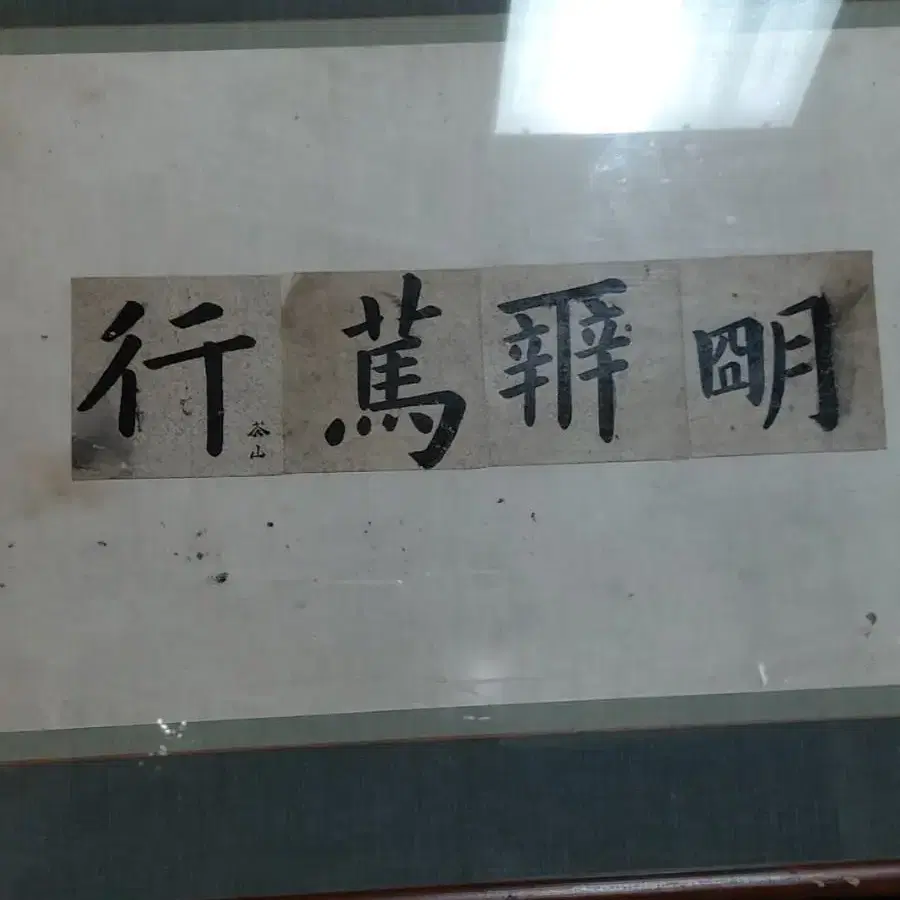 明辨篤行
茶山